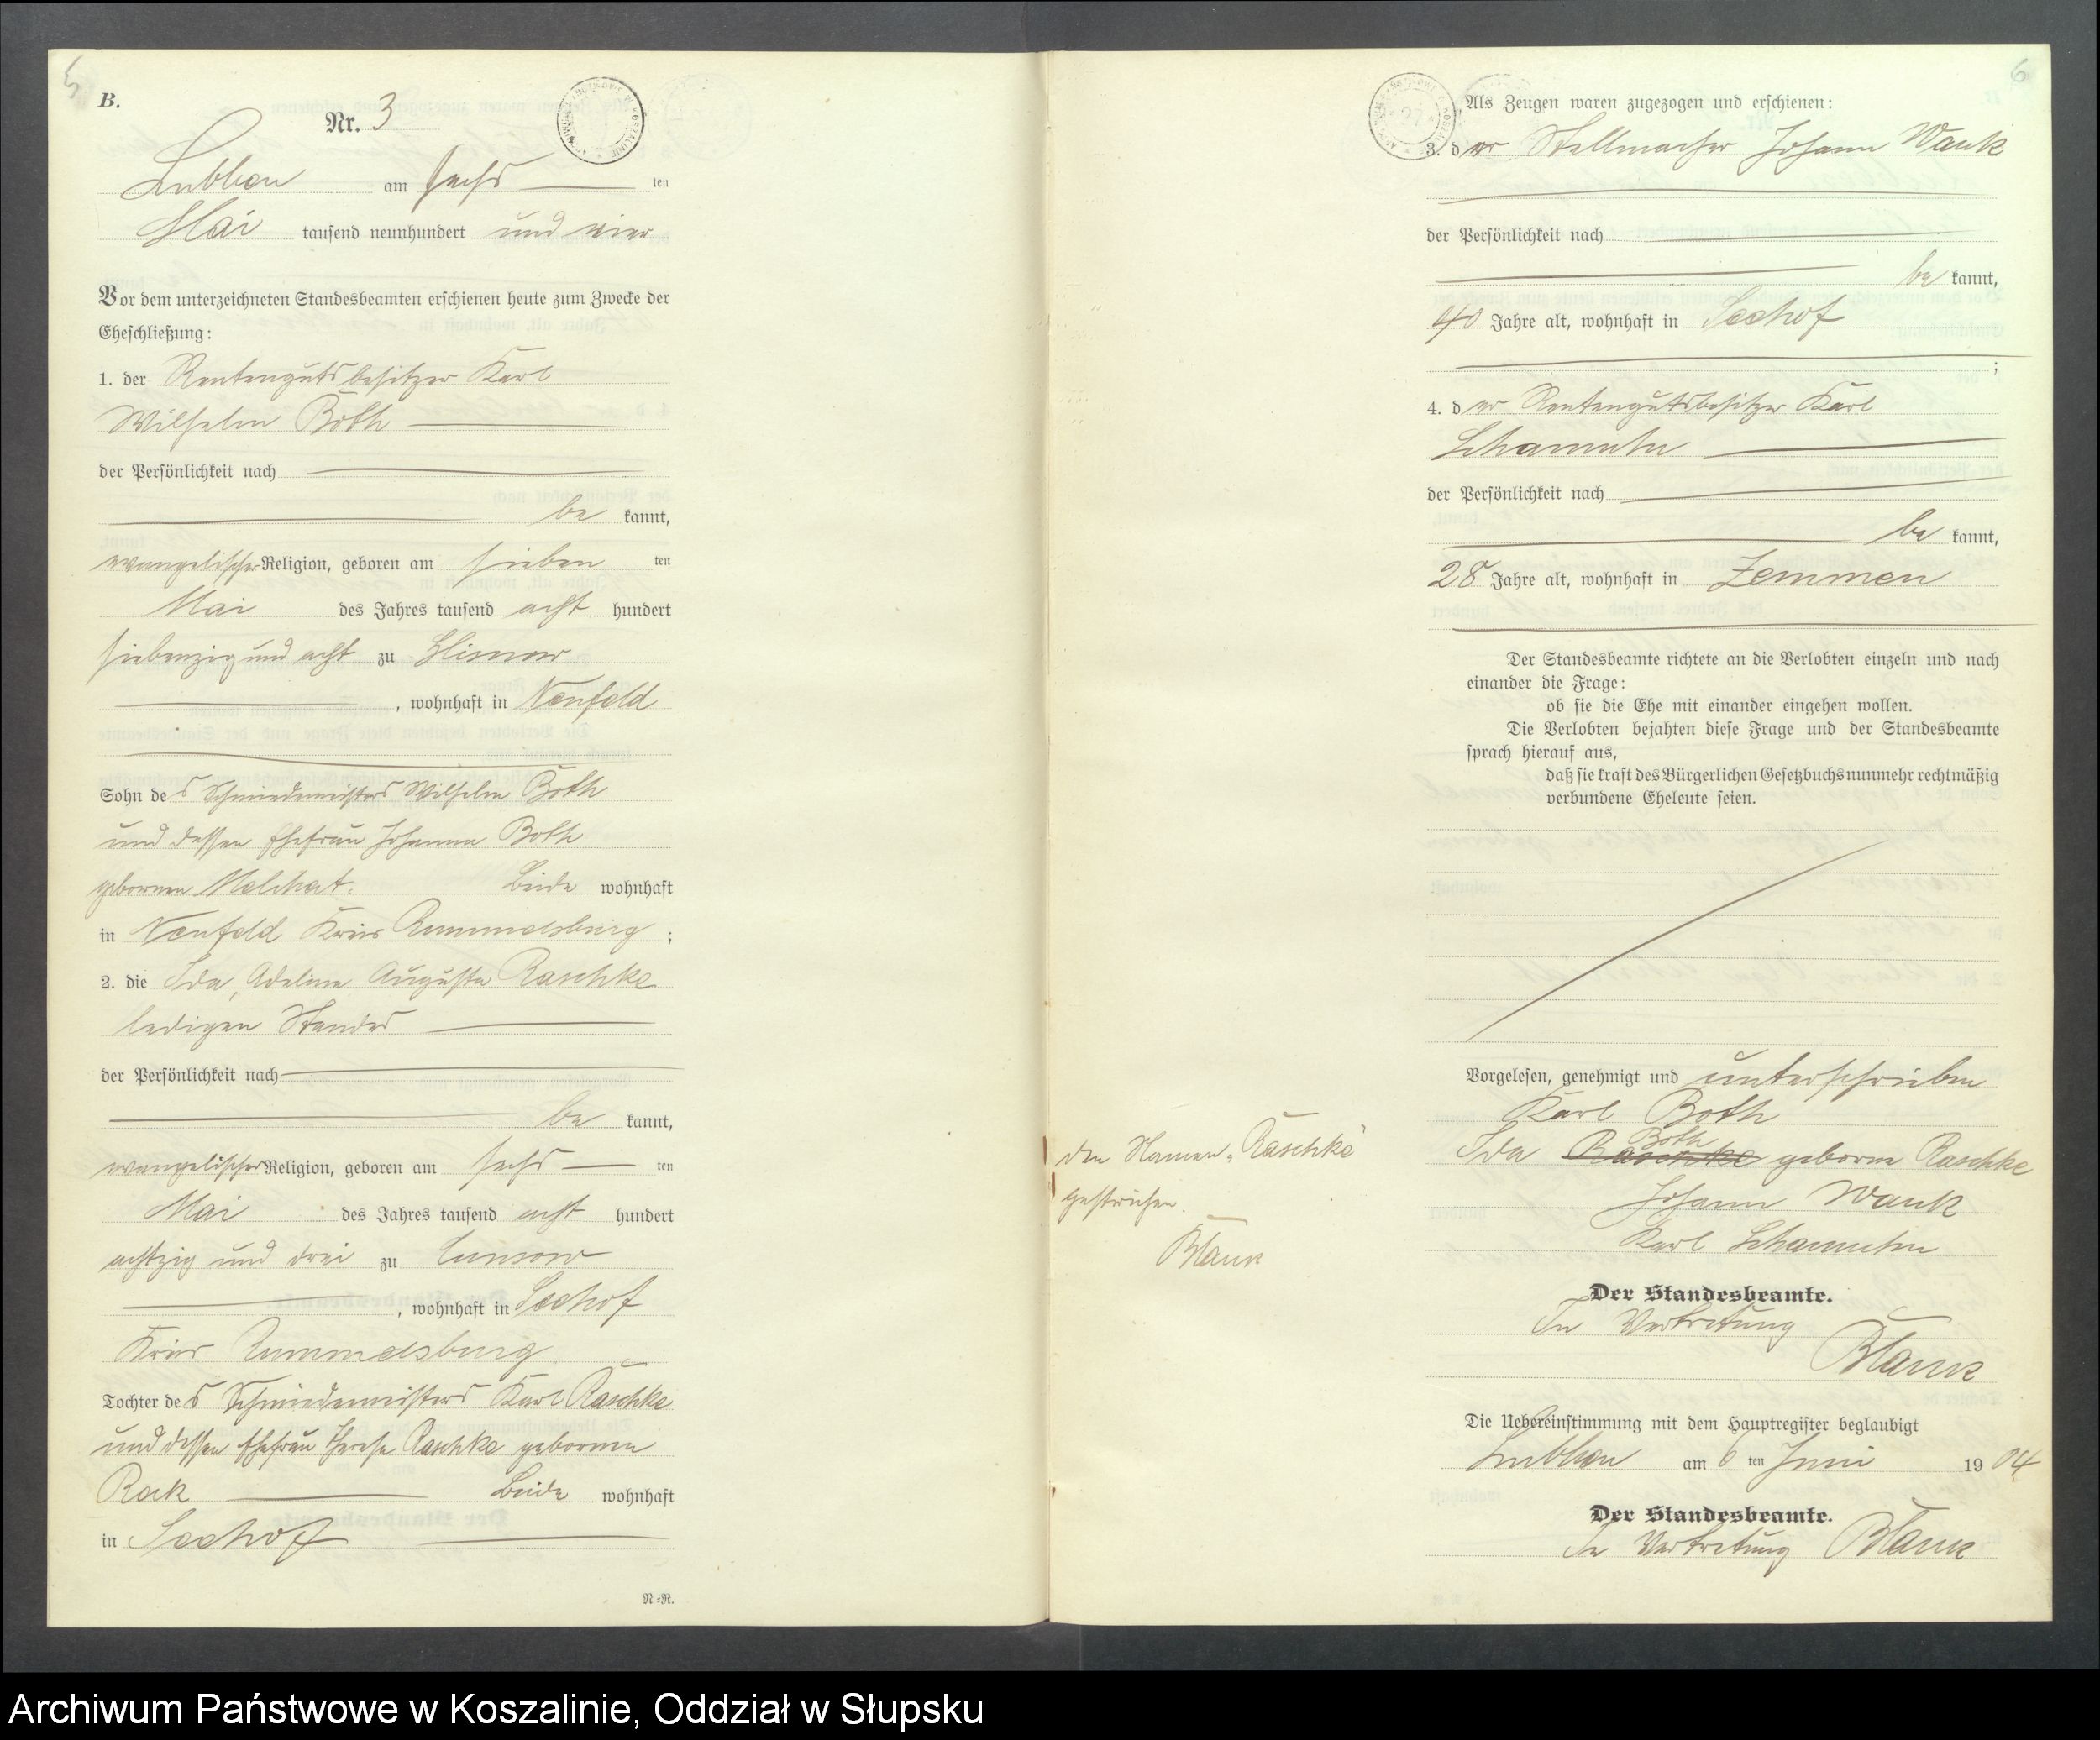 5
B.
Nr. 3
Lubben am sechs ten
Mai tausend neunhundert und vier
Vor dem unterzeichneten Standesbeamten erschienen heute zum Zwecke der
Eheschließung:
1. der Rentengutsbesitzer Karl
Wilhelm Both
der Persönlichkeit nach
be kannt,
evangelischer Religion, geboren am sieben ten
Mai des Jahres tausend acht hundert
siebenzig und acht zu
, wohnhaft in Neufeld
Sohn des Schmiedemeisters Wilhelm Both
und dessen Ehefrau Johanna Both
gebornen Melchat. Beide wohnhaft
in Neufeld Kreis Rummelsburg ;
2. die Ida, Adeline Auguste Raschke
ledigen Standes
der Persönlichkeit nach
be kannt,
evangelischer Religion, geboren am sechs ten
Mai des Jahres tausend acht hundert
achtzig und drei zu
, wohnhaft in Seehof
Kreis Rummelsburg
Tochter des Schmiedemeisters Karl Raschke
und dessen Ehefrau Therese Raschke gebornen
Rock Beide wohnhaft
in Seehof
N=N.
6
Als Zeugen waren zugezogen und erschienen:
3. der Stellmacher Johann Wank
der Persönlichkeit nach
be kannt,
40 Jahre alt, wohnhaft in Seehof
;
4. der Rentengutsbesitzer Karl
Schamuhn
der Persönlichkeit nach
be kannt,
28 Jahre alt, wohnhaft in Zemmen
Der Standesbeamte richtete an die Verlobten einzeln und nach
einander die Frage:
ob sie die Ehe mit einander eingehen wollen.
Die Verlobten bejahten diese Frage und der Standesbeamte
sprach hierauf aus,
daß sie kraft des Bürgerlichen Gesetzbuchs nunmehr rechtmäßig
verbundene Eheleute seien.
Vorgelesen, genehmigt und unterschrieben
Karl Both
Both
Ida Raschke geborne Raschke
Johann Wank
Karl Schamuhn
den Namen „Raschke“
gestrichen.
Blank
Der Standesbeamte.
In Vertretung
Blank
Die Uebereinstimmung mit dem Hauptregister beglaubigt
Lubben am 6 ten Juni 1904
Der Standesbeamte.
In Vertretung Blank
Archiwum Państwowe w Koszalinie, Oddział w Słupsku